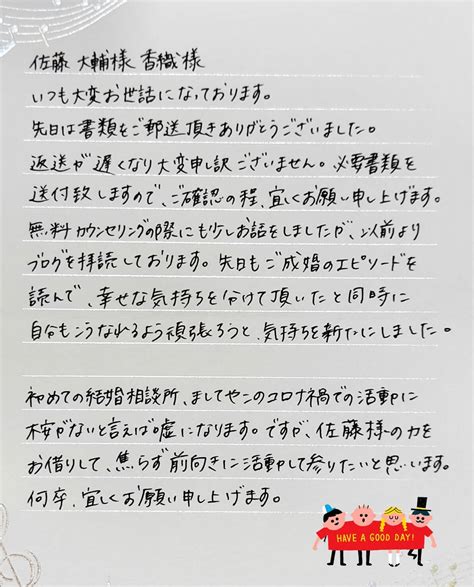 佐藤 大輔様 香織様
いつも大変お世話になっております。
先日は書類をご郵送頂きありがとうございました。
返送が遅くなり大変申し訳ございません。必要書類を
送付致しますので、ご確認の程、宜しくお願い申し上げます。
無料カウンセリングの際にも少しお話をしましたが、以前より
ブログを拝読しております。先日もご成婚のエピソードを
読んで、幸せな気持ちを分けて頂いたと同時に
自分もこうなれるよう頑張ろうと、気持ちを新たにしました。
初めての結婚相談所、ましてやこのコロナ禍での活動に
不安がないと言えば嘘になります。ですが、佐藤様の力を
お借りして、焦らず前向きに活動して参りたいと思います。
何卒、宜しくお願い申し上げます。
HAVE A GOOD DAY!